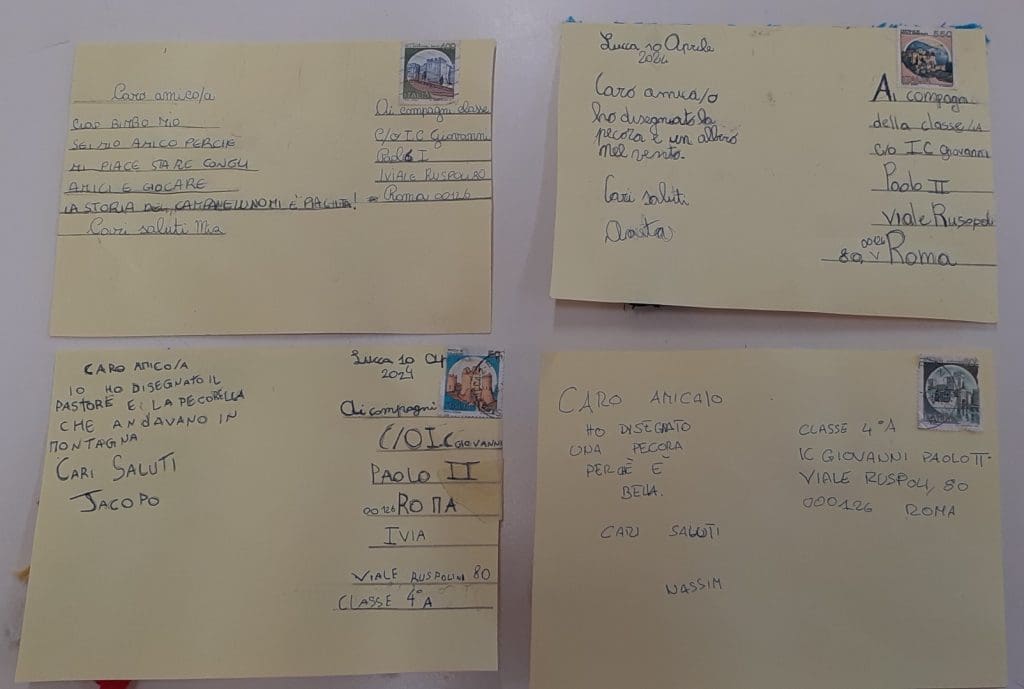 Caro amico/a
CIAO BIMBO MIO
SEI MIO AMICO PERCHÈ
MI PIACE STARE CONGLI
AMICI E GIOCARE
LA STORIA DEL CAMPANELLINO MI È PIACIUTA!
Cari saluti Mia
ITALIA
Ai compagni classe
C/O I.C Giovanni
Paolo I
IVIALE RUSPOLI 80
Roma 00126
Lucca 10 Aprile
2024
Caro amica/o
ho disegnato la
pecora e un albero
nel vento.
Cari saluti
550
Ai compagni
della classe 4A
c/o I C Giovanni
Paolo II
Viale Rusopoli
80, 00126
Roma
CARO AMICO/A
IO HO DISEGNATO IL
PASTORE E LA PECORELLA
CHE ANDAVANO IN
MONTAGNA
CARI SALUTI
JACOPO
Lucca 10
2024
Ai compagni
C/O I.C GIOVANNI
PAOLO II
000126 ROMA
IVIA
VIALE RUSPOLINI 80
CLASSE 4°A
CARO AMICA/O
HO DISEGNATO
UNA PECORA
PERCHÈ È
BELLA.
CARI SALUTI
NASSIM
CLASSE 4°A
IC GIOVANNI PAOLO II
VIALE RUSPOLI, 80
000126 ROMA